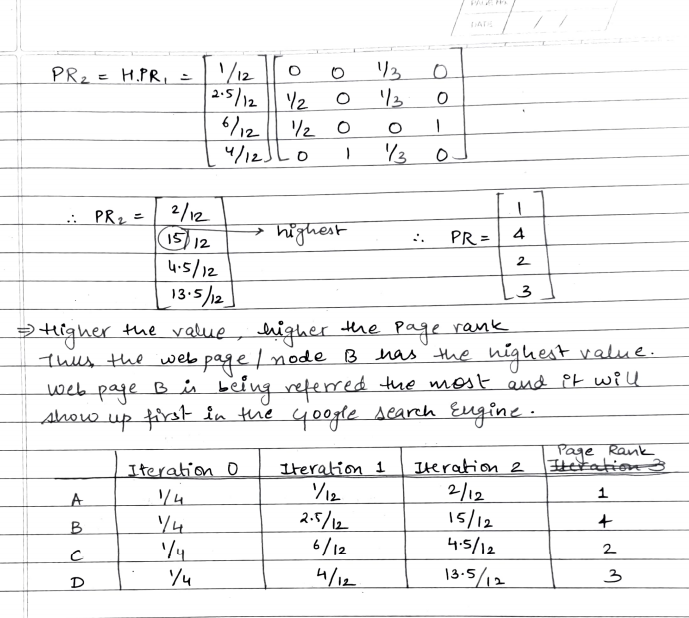 PAGE No
DATE / /
PR₂ = H.PR₁ = [1/12 2.5/12 6/12 4/12] [0 0 1/3 0
1/2 0 1/3 0
1/2 0 0 1
0 1 1/3 0]
∴ PR₂ = [2/12 15/12 4.5/12 13.5/12] → highest ∴ PR = [1 4 2 3]
⇒ Higher the value, higher the Page rank
Thus the web page / node B has the highest value.
Web page B is being referred the most and it will
show up first in the Google Search Engine.
Iteration 0 Iteration 1 Iteration 2 Page Rank
Iteration 3
A 1/4 1/12 2/12 1
B 1/4 2.5/12 15/12 4
C 1/4 6/12 4.5/12 2
D 1/4 4/12 13.5/12 3